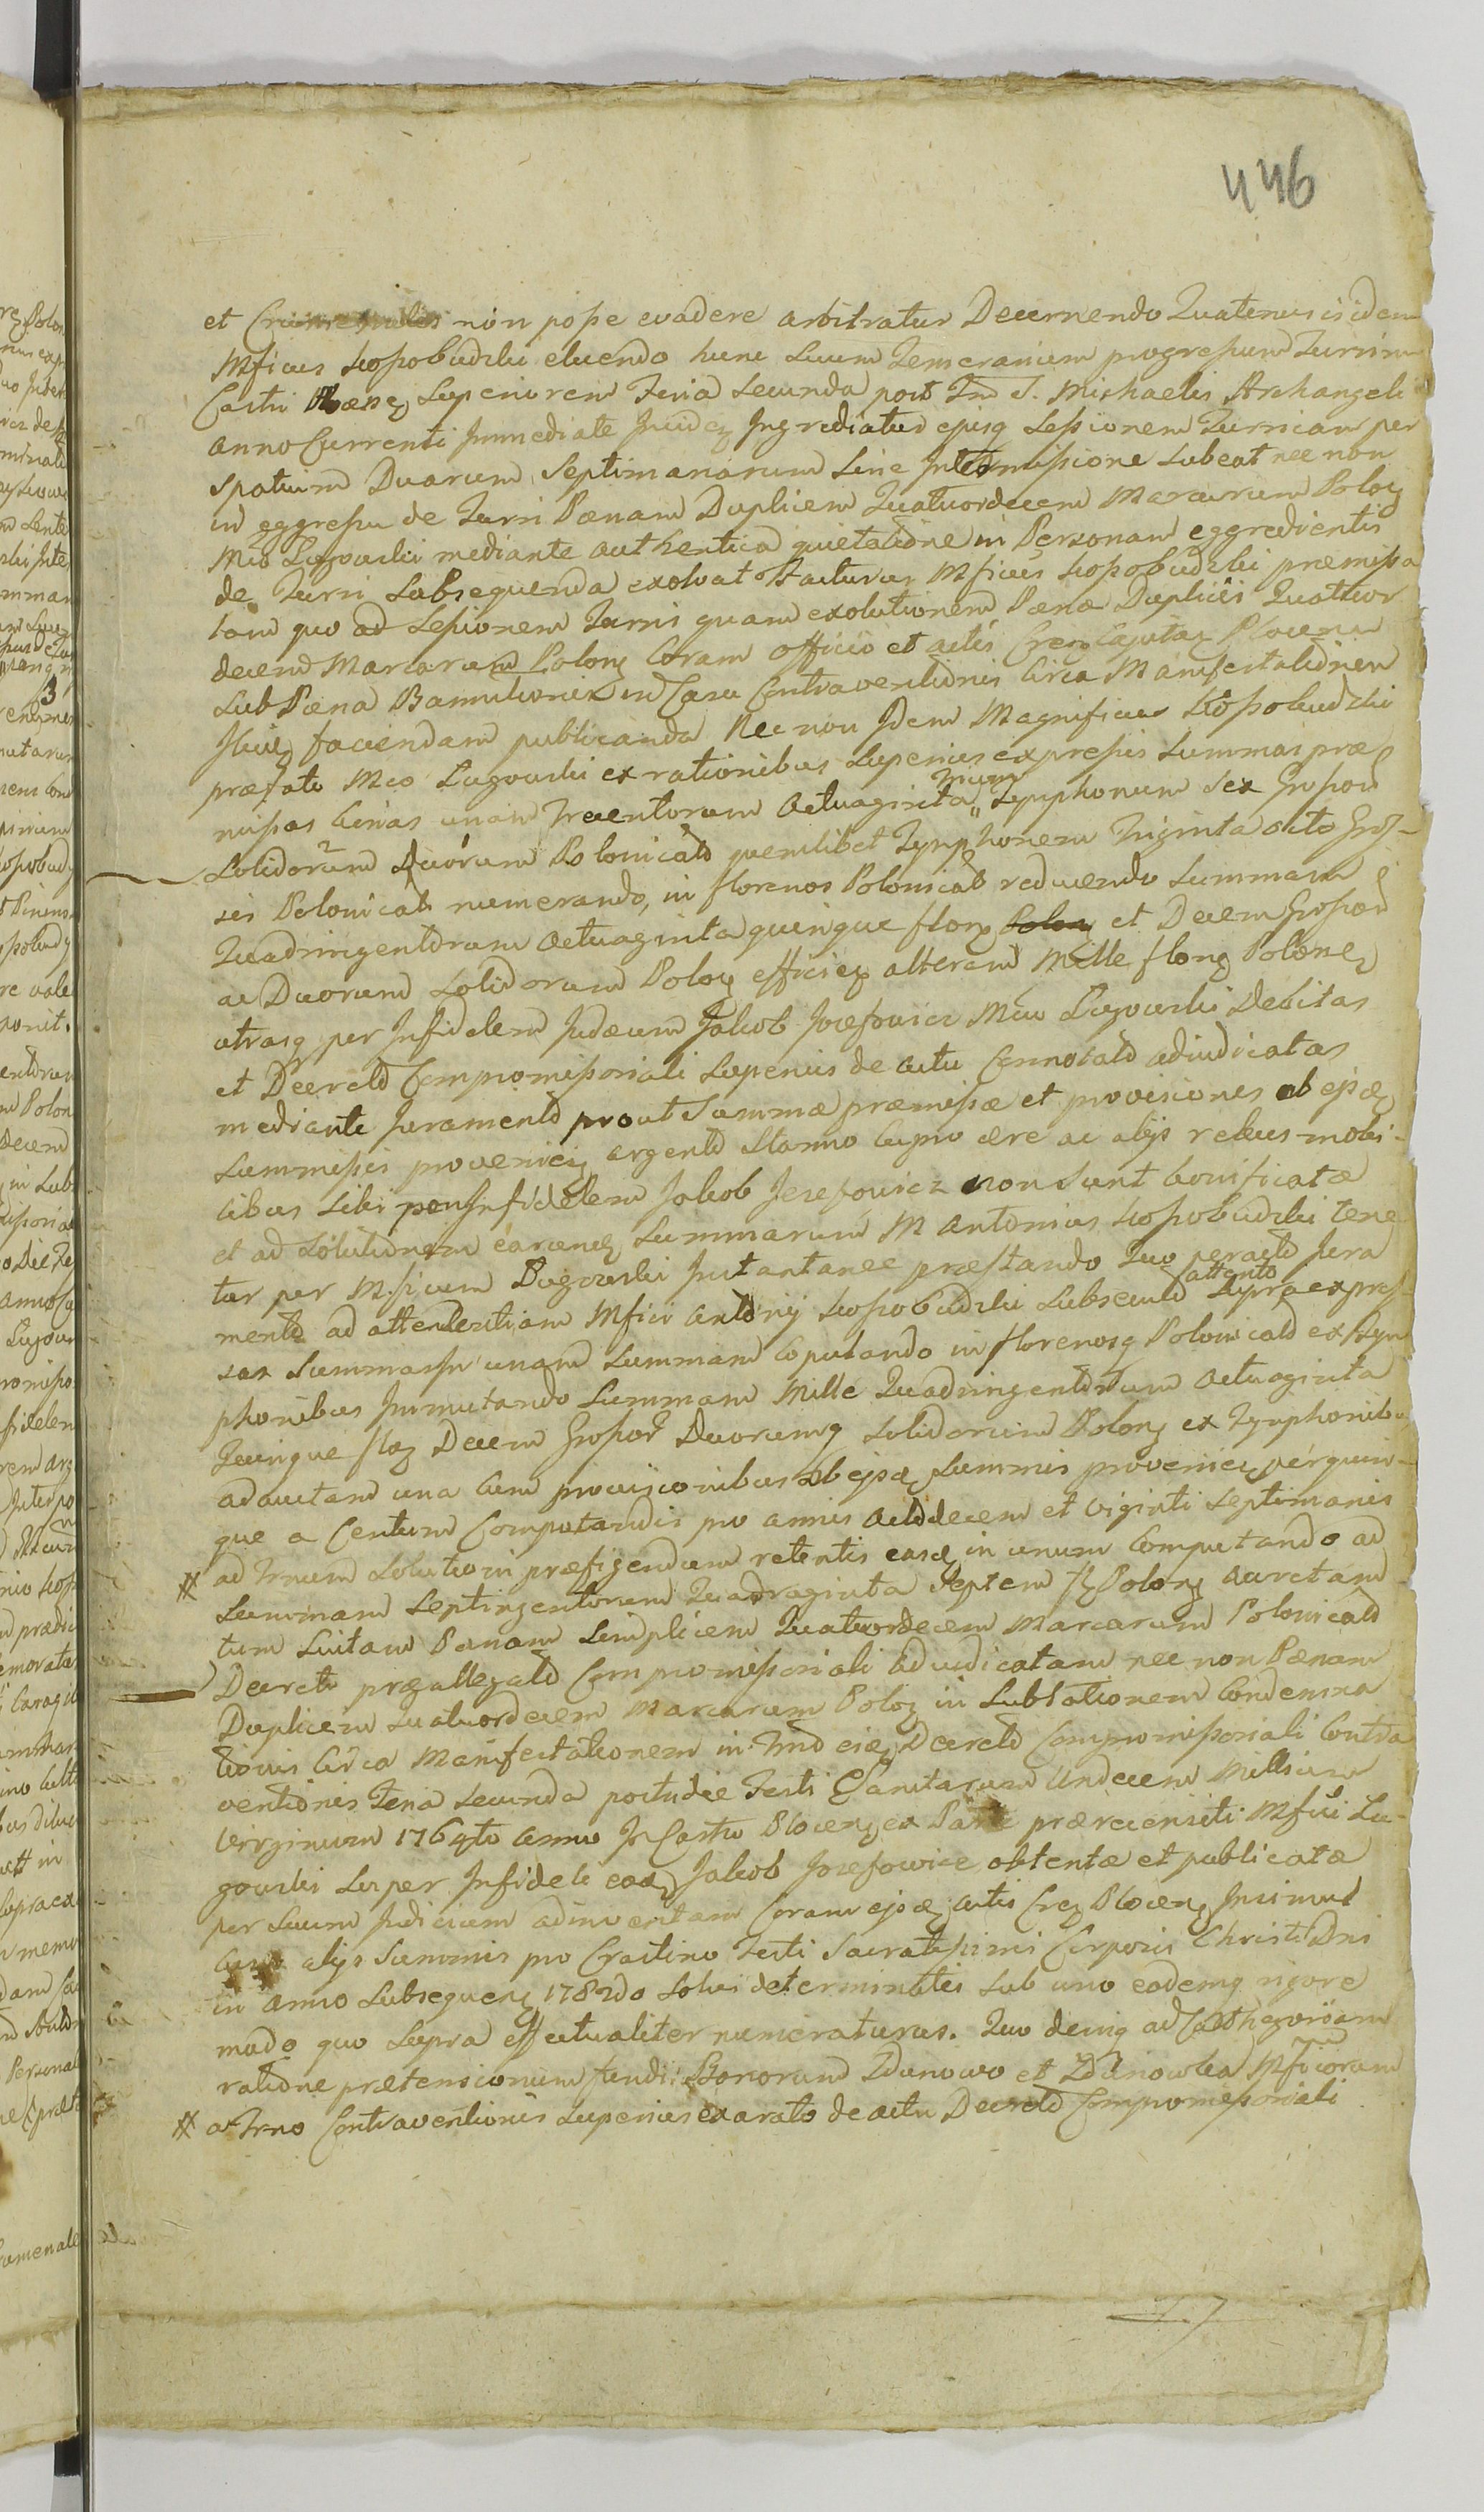 446
et non posse evadere arbitratur Decernendo Quatenus is idem
Mficus Kossobudzki eluendo hunc Suum Temerarium progressum Turrim
Castri Superiorem Feria Secunda post Fm S. Michaelis Archangeli
anno Currenti Immediate Ingrediatur ejusq Sessionem Turricam per
Spatium Duarum Septimanarum Sine Intermissione Subeat nec non
in eggressu de Turri Pœnam Duplicem Quatuordecem Marcarum Polog
Mco Lugowski mediante authentica quietatione in Personam eggredientis
de Turri Subsequenda exolvat Facturus Mficus Kossobudzki præmissa
tam quo ad Sessionem Turris quam exolutionem Pœnæ Duplicis Quattuor
decem Marcarum Polong Coram officio et actis Plocen
Sub Pœna Bannitionis in Casu Contraventionis Circa Manifestationem
faciendam publicanda Nec non Idem Magnificus Kossobudzki
præfato Mco Lugowski ex rationibus Superius expressis Summas præ
missas binas unam Trecentorum Octuaginta Trium Tymphonum Sex Grossor
Solidorum 2 Duorum 1 Polonicalo quemlibet Tymphonem Triginta octo Gros-
sis Polonical numerando, in florenos Polonical reducendo Summam
Quadringentorum Octuaginta quinque florg Polong et Decem Grossor
ac Duorum Solidorum Polog efficieg alteram Mille flong Polone
utrasq per Infidelem Judæum Jakob Josefowicz Mco Lugowski Debitas
et Decreto Compromissoriali Superius de actu Connotato adiudicatas
mediante Juramento prout Summæ præmissæ et provisiones ab ejsg
Summis provenieg argento Stanno Cupro ære ac alijs rebus mobi-
libus Sibi per Infidelem Jakob Josefowicz non Sunt bonificatæ
et ad Solutionem earundg Summarum M Antonius Kossobudzki tene
tur per Mficum Lugowski Instantanee præstando Quo peracto Jura
mento ad attendentiam Mfici Antonij Kossobudzki Subsecuto attento Supra expres-
sas Summas In unam Summam Coputando in florenosq Polonicalo ex Tym
phonibus Immutando Summam Mille Quadringentorum Octuaginta
Quinque flog Decem Grossor Duorumq Solidorum Polong ex Tymphonibus
adauctam una Cum provisionibus ab ejsg Summis provenieg per quin-
que a Centum Computandis pro annis octodecem et Viginti Septimanis
# ad Trnum Solutioni præfigendum retentis easq in unum Computando ad
Summam Septingentorum Quadraginta Septem fl Polong
tum luitam Pœnam Simplicem Quatuordecem Marcarum Polonicalo
Decreto præallegato Compromissoriali Adiudicatam nec non Pœnam
Duplicem Quatuordecem Marcarum Polog in Sublationem Condemna
tionis Circa Manifestationem in Trno eiq Decreto Compromissoriali Contra
ventionis Feria Secunda postridie Festi Sanctarum Undecem Millium
Virginum 1764to anno In Castro Plocen ex Parte præcensiti Mfici Lu-
gowski Super Infideli eoq Jakob Josefowicz obtentæ et publicatæ
per Suum Judicium adinventam Coram ejsg actis Plocen Insimul
Cum alijs Summis pro Crastino Festi Sacratissimi Corporis Christi Dni
in anno Subsequeng 1782do Solvi determinatis Sub uno eodemq rigore
modo quo Supra effectualiter numeraturus. Quo deniq ad Cathegoriam
ratione prætensionum fundi Bonorum Zdunowo et Zdunowka Mficorum
# a Trno Contraventionis Superius exarato de actu Decreto Compromissoriali